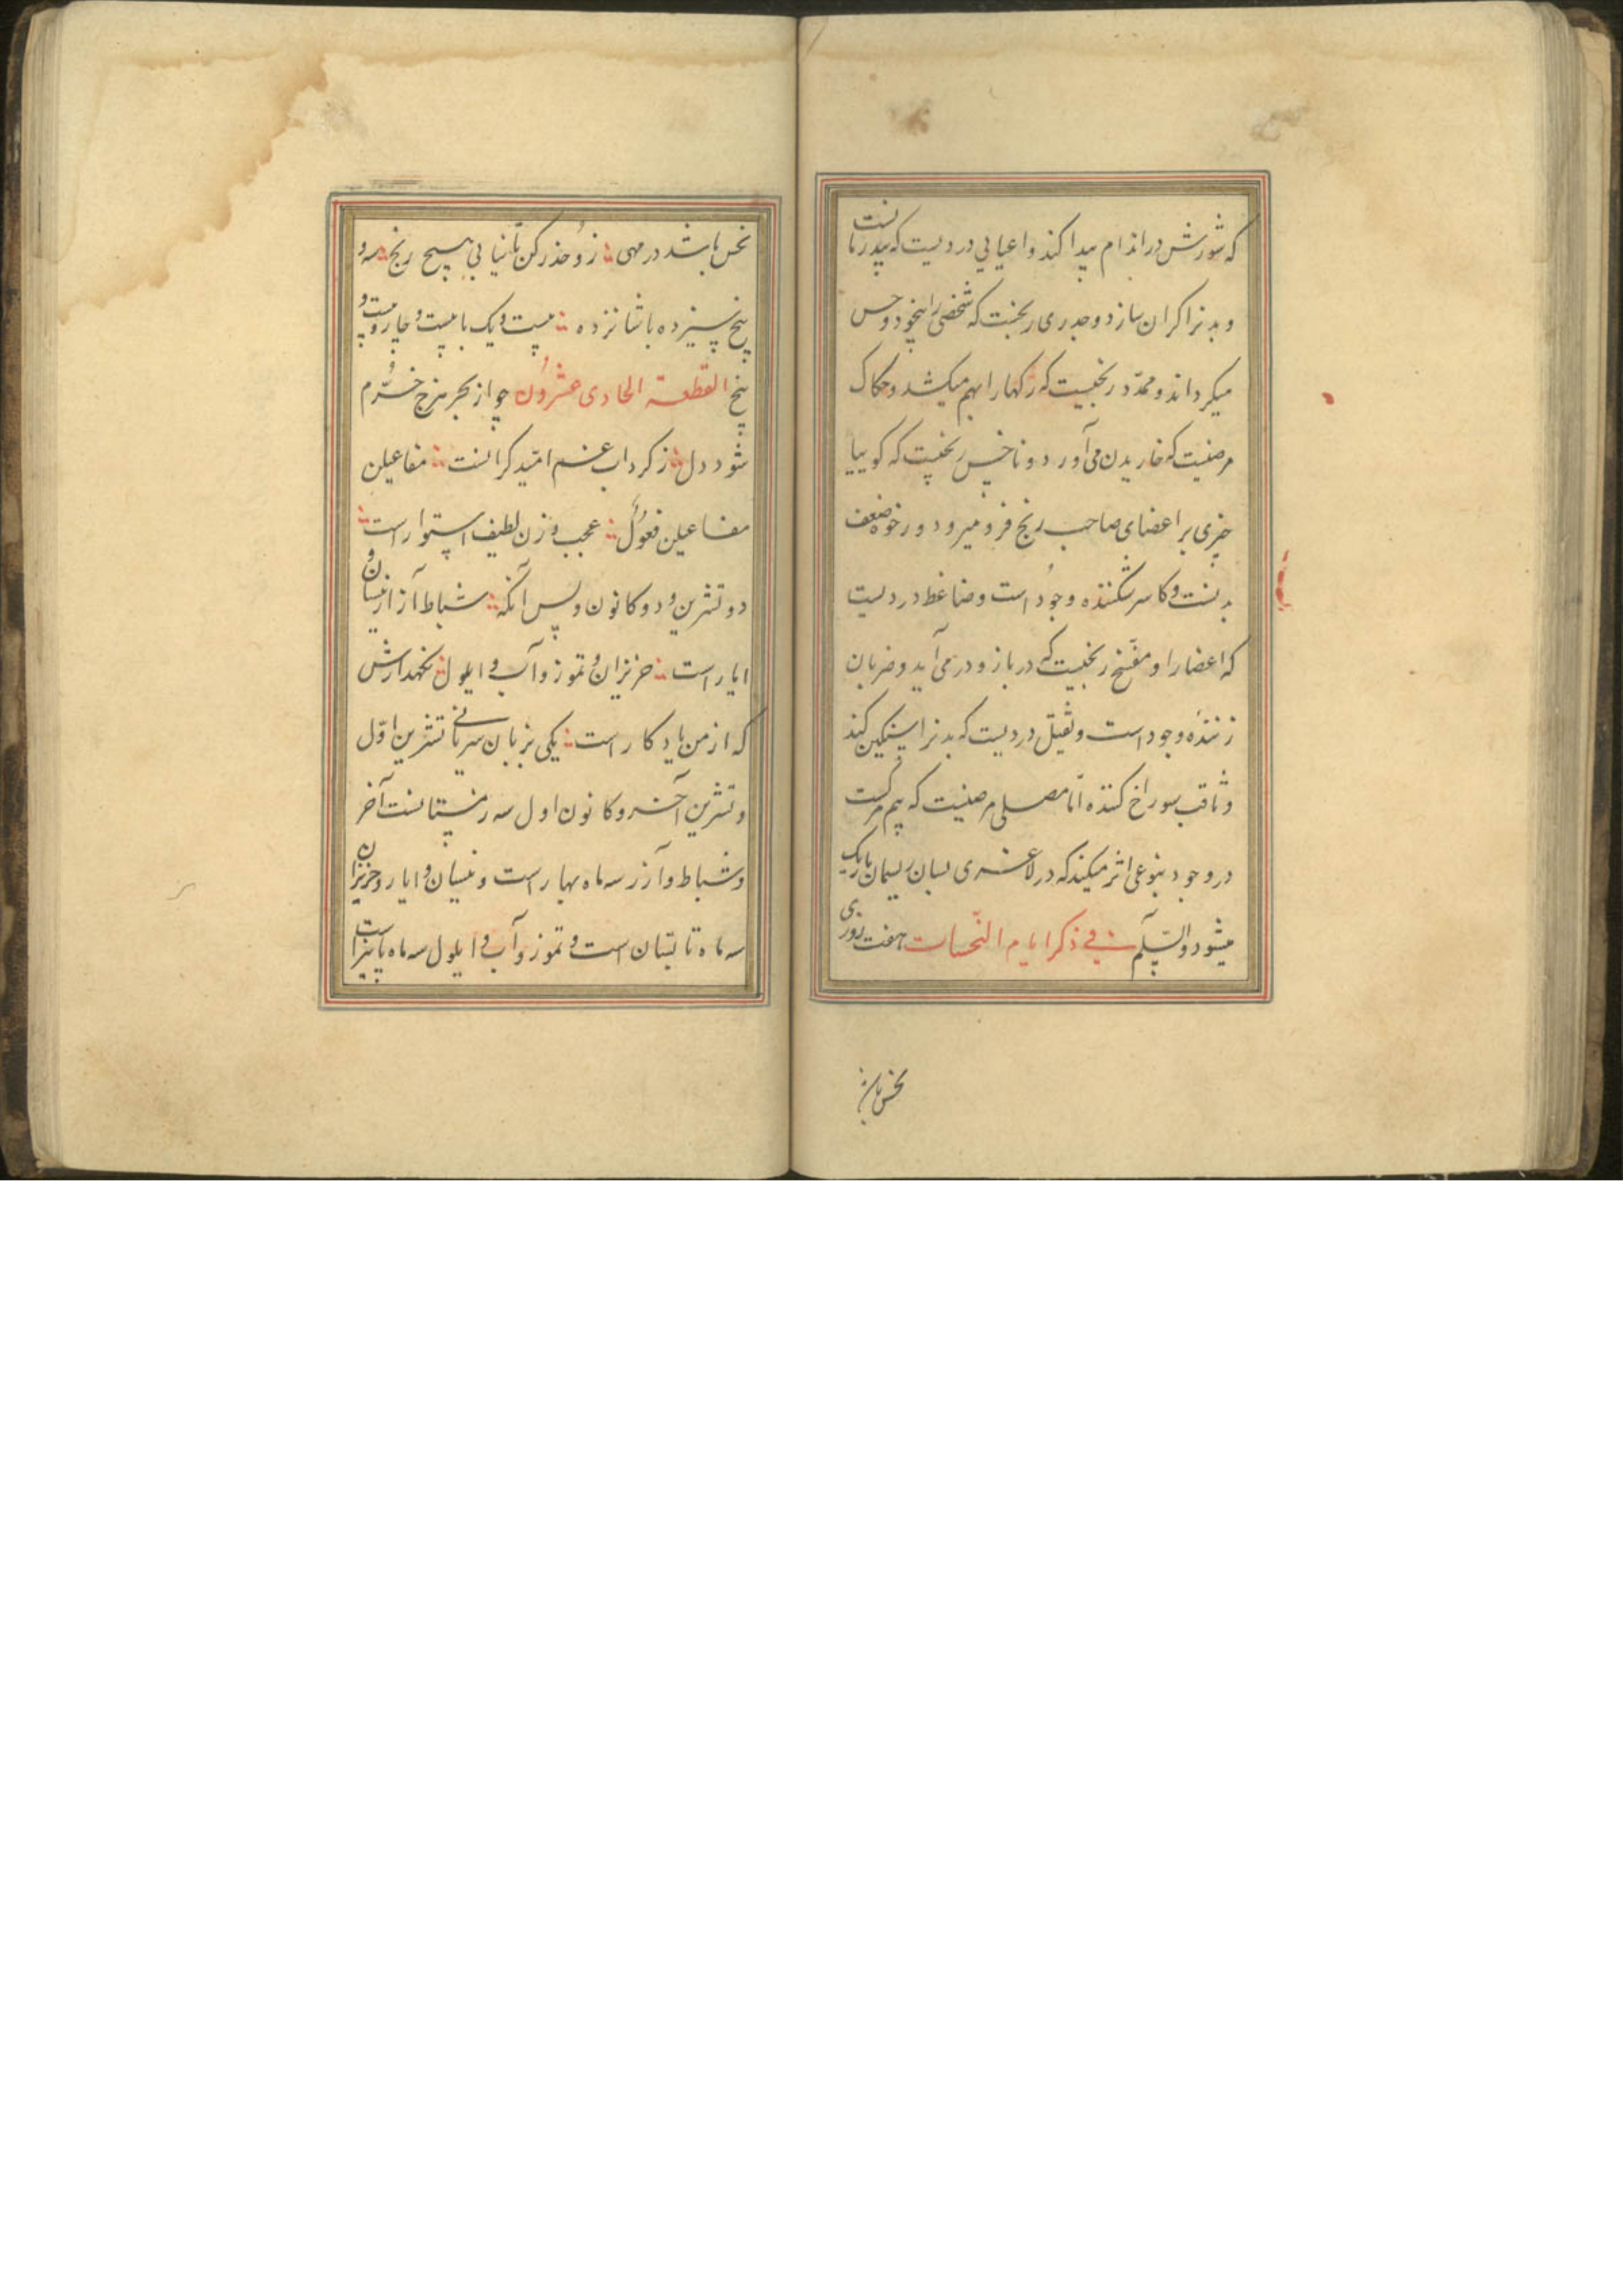 که شورش در اندام پیدا کند و اعیایی دردیست که پیدرمانست
و بدنرا کران سازد و جدری رنجیست که شخص را بیخود و حس
میکرداند و ممدّد رنجیست که رکها را بهم میکشد و حکاک
مرضیست که خاریدن می آورد و ناخس رنجیست که کوییا
چیزی بر اعضای صاحب رنج فرو میرود و رخوه ضعف
بدنست و کاسر شکننده وجود است و ضاغط دردیست
که اعضا را و مفسّخ رنجیست که در بازو در می آید و ضربان
زننده وجود است و ثقیل دردیست که بدنرا سنکین کند
و ثاقب سوراخ کننده امّا مصلی مرضیست که بیم مرکست
در وجود بنوعی اثر میکند که در لاغری بسان ریسمان باریک
میشود والسّلم فی ذکر ایام النّحسات هفت روزی
نحس باشد در مهی زو حذر کن تا نیابی هیچ رنج سه و
پنج سیزده با شانزده بیست و یک با بیست و چار و بیست و
پنج القطعة الحادی عشرون چو از بحر هزج خرّم
شود دل ز کرداب غم امّید کرانست مفاعیلن
مفاعیلن فعولن عجب وزن لطیف استوار است
دو تشرین و دو کانون و پس آنکه شباط آزار نیسان و
ایار است حزیران و تموز و آب و ایلول نکهدارش
که از من یادکار است یکی بزبان سریانی تشرین اوّل
و تشرین آخر و کانون اول سه زمستانست آخر
و شباط و آزر سه ماه بهار است و نیسان و ایار و حزیران
سه ماه تابستان است و تموز و آب و ایلول سه ماه پاییز است
نحس باشد